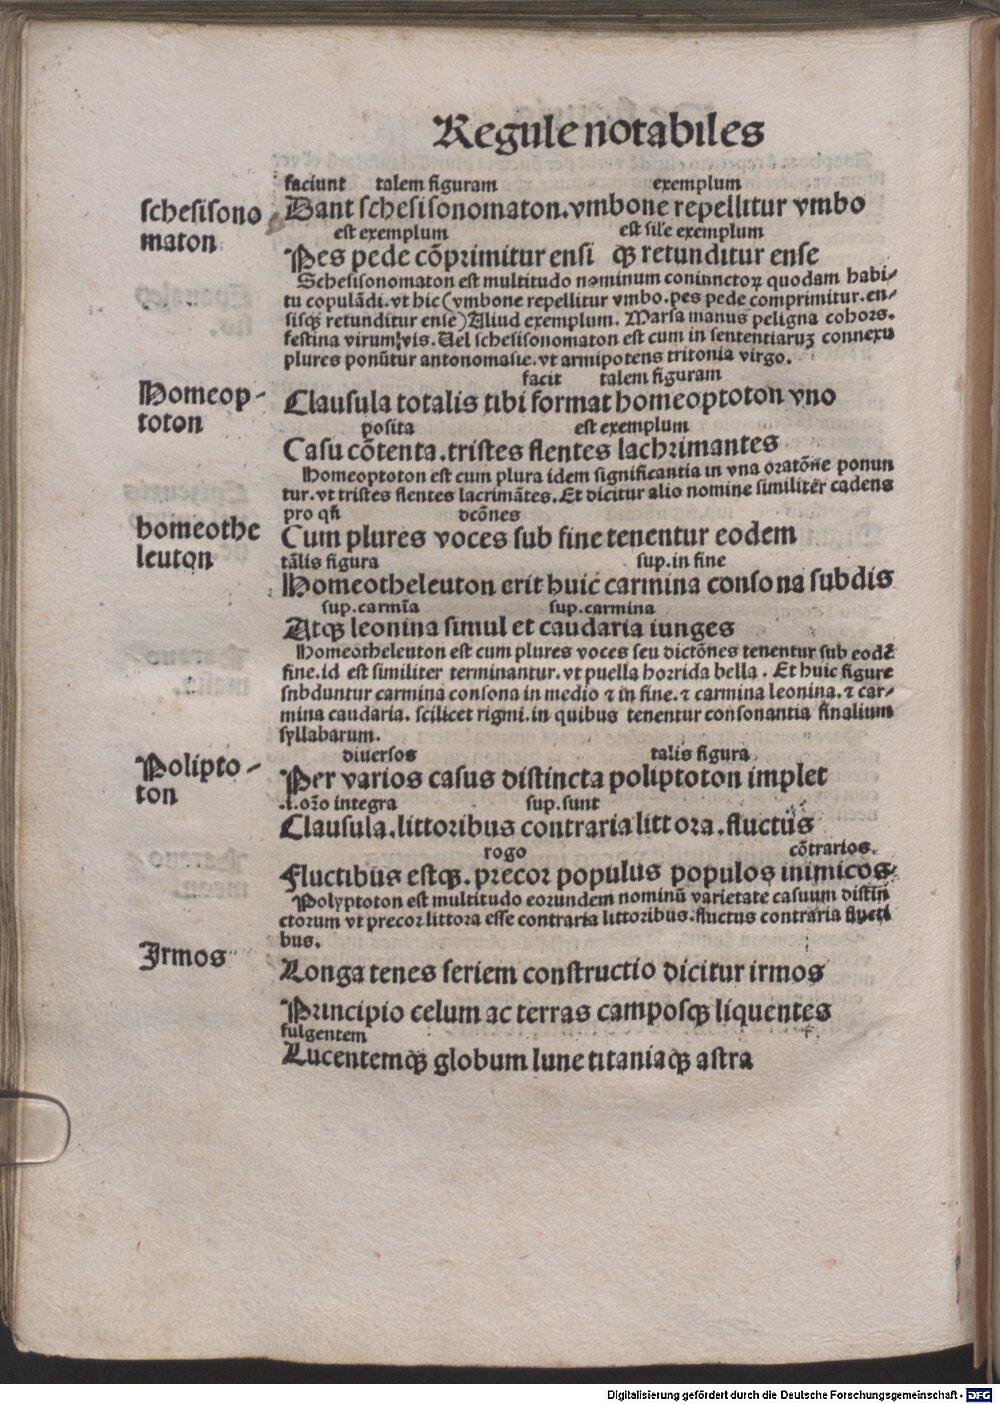 Regule notabiles
faciunt talem figuram exemplum
schesisono
maton
Dant schesisonomaton. vmbone repellitur vmbo
est exemplum est sile exemplum
Pes pede cōprimitur ensi qꝫ retunditur ense
Schesisonomaton est multitudo nominum coniunctoꝝ quodam habi⸗
tu copulādi. vt hic (vmbone repellitur vmbo. pes pede comprimitur. en⸗
sisqꝫ retunditur ense) Aliud exemplum. Marsa manus peligna cohors.
festina virum vis. Uel schesisonomaton est cum in sententiaruꝫ connexu
plures ponūtur antonomasie. vt armipotens tritonia virgo.
facit talem figuram
Homeop⸗
toton
Clausula totalis tibi format homeoptoton vno
posita est exemplum
Casu cōtenta. tristes flentes lachrimantes
Homeoptoton est cum plura idem significantia in vna oratōne ponun
tur. vt tristes flentes lacrimātes. Et dicitur alio nomine similiter cadens
pro qn̄ dcōnes
homeothe
leuton
Cum plures voces sub fine tenentur eodem
tālis figura sup. in fine
Homeotheleuton erit huic carmina consona subdis
sup. carmīa sup. carmina
Atqꝫ leonina simul et caudaria iunges
Homeotheleuton est cum plures voces seu dictōnes tenentur sub eodē
fine. id est similiter terminantur. vt puella horrida bella. Et huic figure
subduntur carmina consona in medio ⁊ in fine. ⁊ carmina leonina. ⁊ car⸗
mina caudaria. scilicet rigmi. in quibus tenentur consonantia finalium
syllabarum.
diuersos talis figura
Polipto⸗
ton
Per varios casus distincta poliptoton implet
.i. orō integra sup. sunt
Clausula. littoribus contraria littora. fluctus
rogo cōtrarios.
Fluctibus estqꝫ. precor populus populos inimicos
Polyptoton est multitudo eorundem nominū varietate casuum distin
ctorum vt precor littora esse contraria littoribus. fluctus contraria flucti
bus.
Irmos
Longa tenes seriem constructio dicitur irmos
Principio celum ac terras camposqꝫ liquentes
fulgentem
Lucentemqꝫ globum lune titaniaqꝫ astra
Digitalisierung gefördert durch die Deutsche Forschungsgemeinschaft - DFG